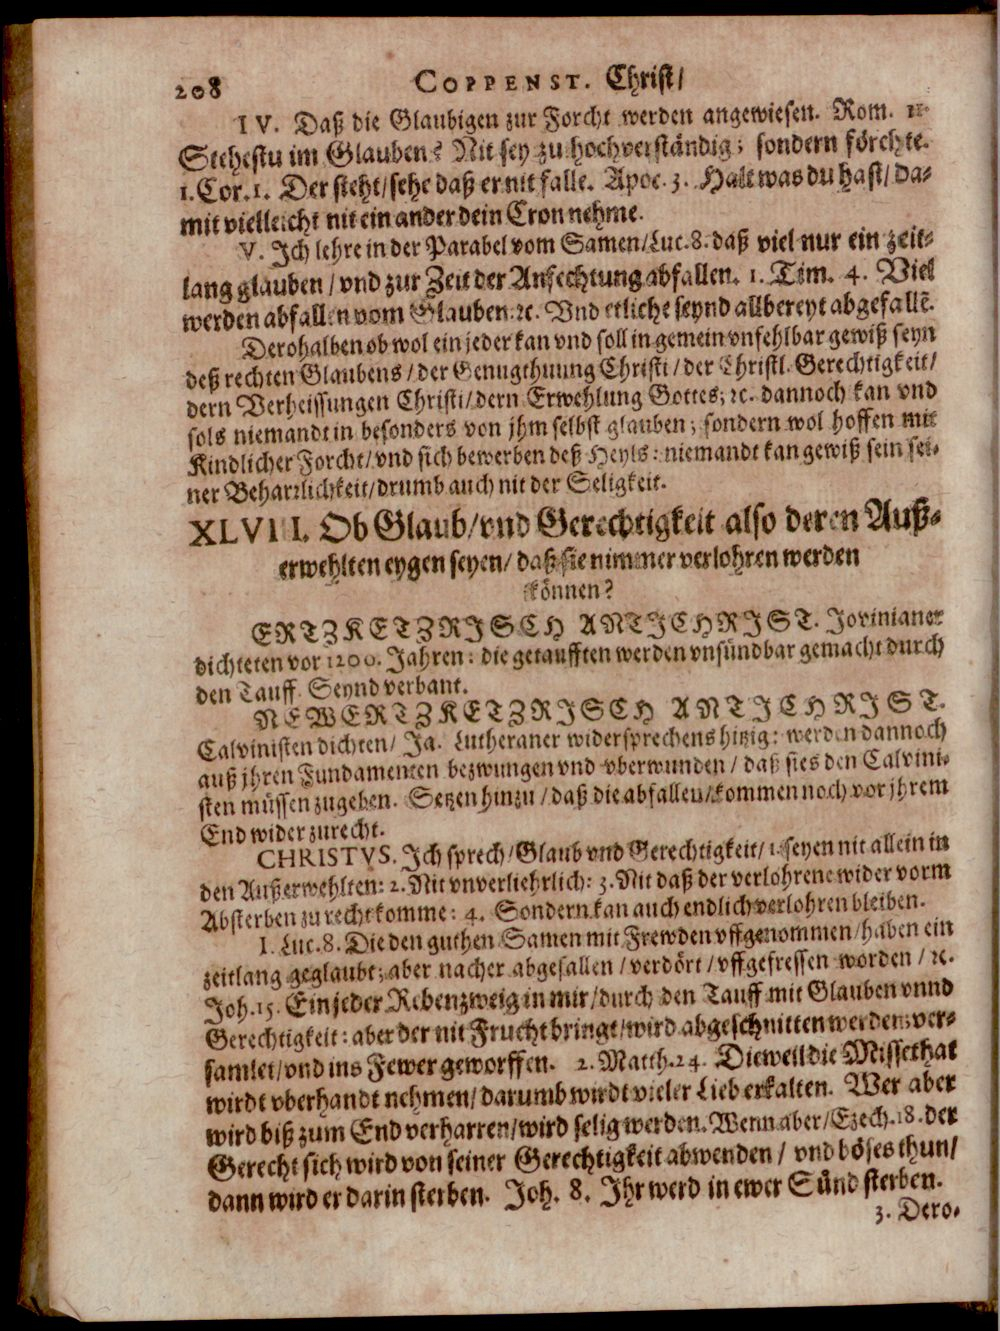 208 COPPENST. Christ/
IV. Daß die Glaubigen zur Forcht werden angewiesen. Rom. 11.
Stehestu im Glauben? Nit sey zu hochverständig; sondern förchte.
1. Cor. 1. Der steht/ sehe daß er nit falle. Apoc. 3. Halt was du hast/ da-
mit vielleicht nit ein ander dein Cron nehme.
V. Ich lehre in der Parabel vom Samen/ Luc. 8. daß viel nur ein zeit-
lang glauben / vnd zur Zeit der Anfechtung abfallen. 1. Tim. 4. Viel
werden abfallen vom Glauben: ꝛc. Vnd etliche seynd allbereyt abgefallē.
Derohalben ob wol ein jeder kan vnd soll in gemein vnfehlbar gewiß seyn
deß rechten Glaubens / der Genugthuung Christi / der Christl. Gerechtigkeit/
dern Verheissungen Christi/ dern Erwehlung Gottes; ꝛc. dannoch kan vnd
sols niemandt in besonders von jhm selbst glauben; sondern wol hoffen mit
Kindlicher Forcht/ vnd sich bewerben deß Heyls: niemandt kan gewiß sein sei-
ner Beharrlichkeit/ drumb auch nit der Seligkeit.
XLVIII. Ob Glaub/ vnd Gerechtigkeit also deren Auß-
erwehlten eygen seyen/ daß sie nimmer verlohren werden
können?
ERTZKETZRISCH ANTICHRIST. Jovinianer
dichteten vor 1200. Jahren: die getaufften werden vnsündbar gemacht durch
den Tauff. Seynd verbant.
NEWERTZKETZRISCH ANTICHRIST.
Calvinisten dichten/ Ja. Lutheraner widersprechens hitzig: werden dannoch
auß jhren Fundamenten bezwungen vnd vberwunden / daß sies den Calvini-
sten müssen zugeben. Setzen hinzu / daß die abfallen/ kommen noch vor jhrem
End wider zurecht.
CHRISTVS. Ich sprech/ Glaub vnd Gerechtigkeit/ 1. seyen nit allein in
den Außerwehlten: 2. Nit vnverliehrlich: 3. Nit daß der verlohrene wider vorm
Absterben zu recht komme: 4. Sondern kan auch endlich verlohren bleiben.
I. Luc. 8. Die den guthen Samen mit Frewden vffgenommen/ haben ein
zeitlang geglaubt; aber nacher abgefallen / verdört / vffgefressen worden / ꝛc.
Joh. 15. Ein jeder Rebenzweig in mir/ durch den Tauff mit Glauben vnnd
Gerechtigkeit: aber der nit Frucht bringt/ wird abgeschnitten werden; ver-
samlet/ vnd ins Fewer geworffen. 2. Matth. 24. Dieweil die Missethat
wirdt vberhandt nehmen/ darumb wirdt vieler Lieb erkalten. Wer aber
wird biß zum End verharren/ wird selig werden. Wenn aber/ Ezech. 18. der
Gerecht sich wird von seiner Gerechtigkeit abwenden / vnd böses thun/
dann wird er darin sterben. Joh. 8. Ihr werd in ewer Sünd sterben.
3. Dero-